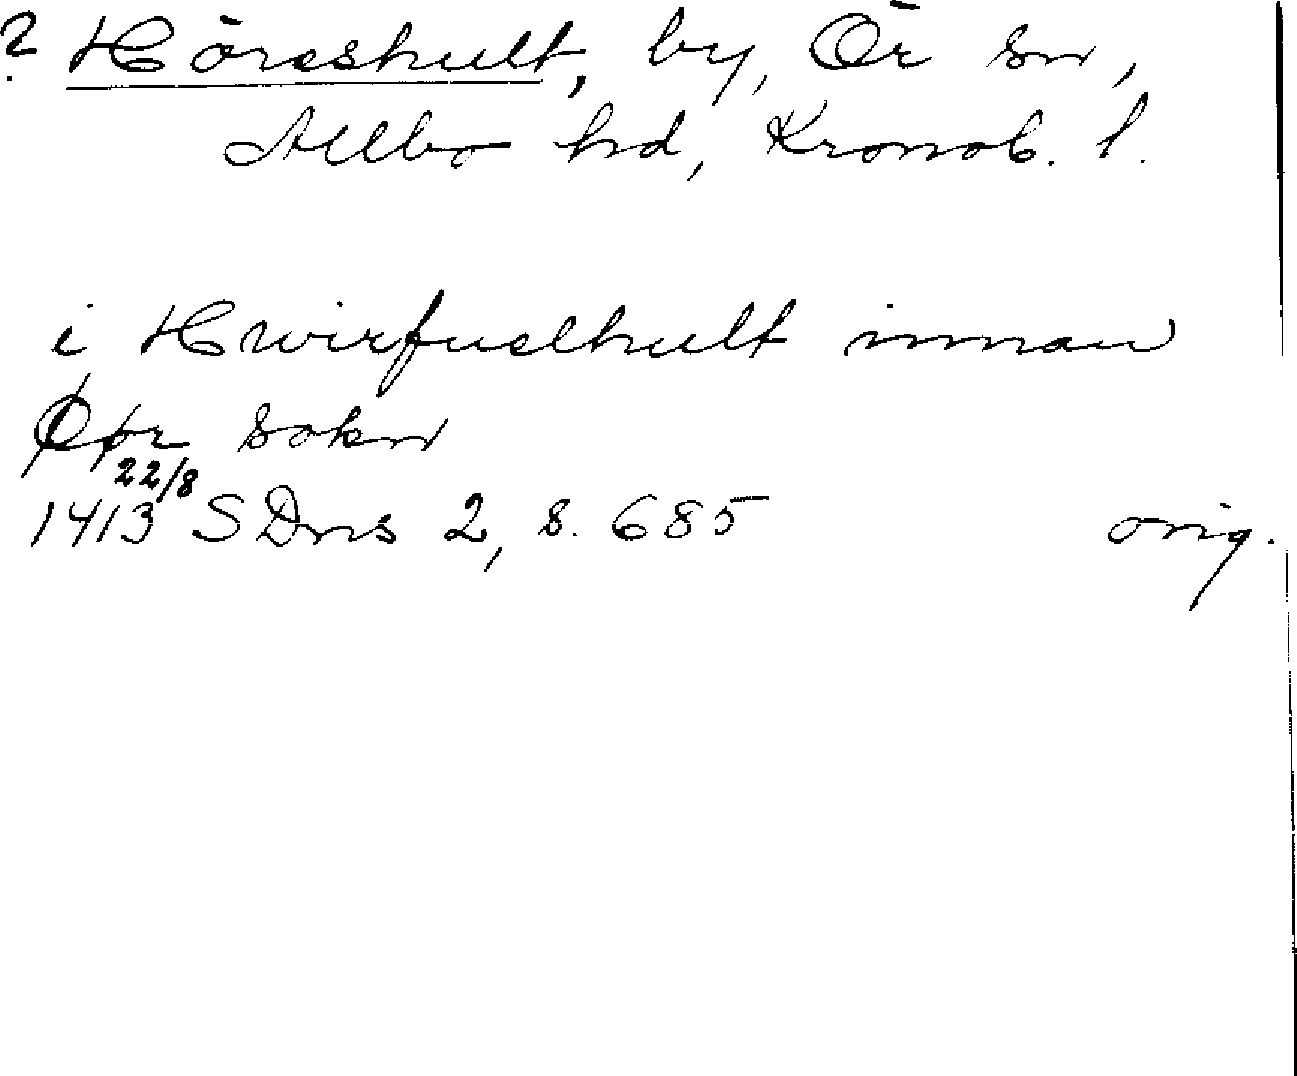 ? Höreshult, by, Ör sn,
Allbo hd, Kronob. l.
i Hwirfuelhult innan
Øør sokn
1413 22/8 SDns 2, s. 685 orig.